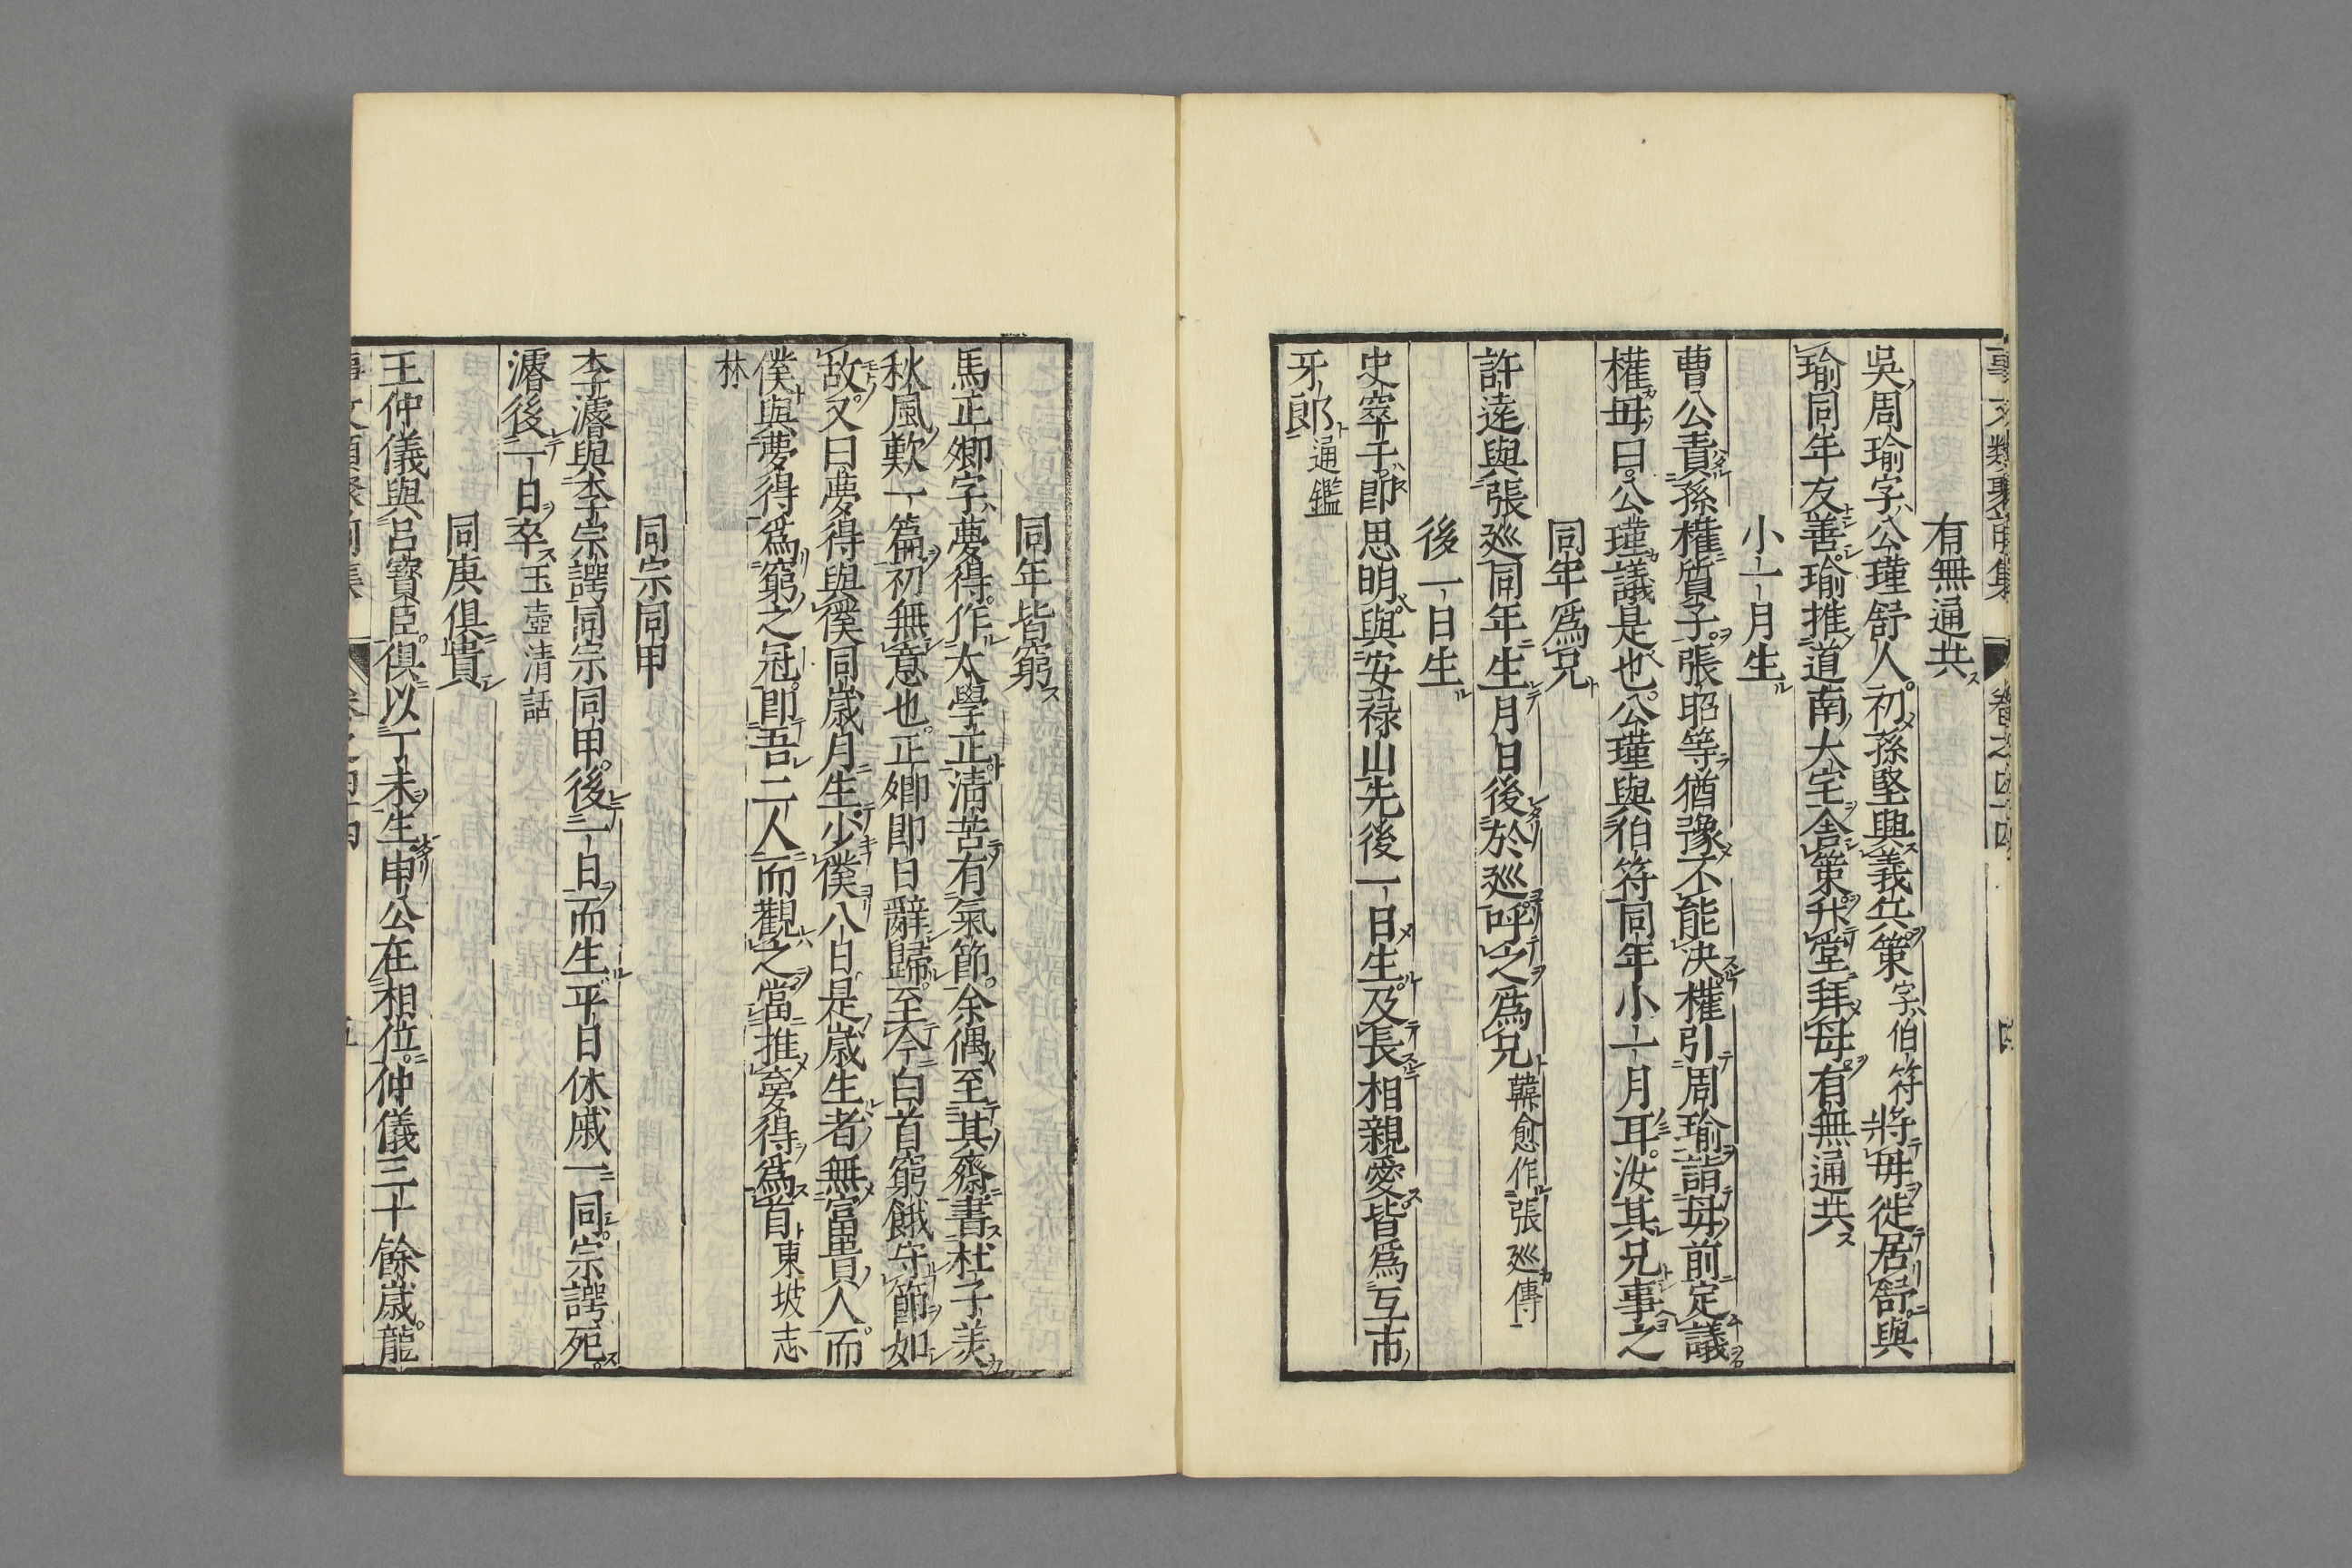 事文類聚前集 卷之四十四 四
有無通共
吳周瑜字公瑾舒人初孫堅興義兵策字伯符將母徙居舒與
瑜同年友善瑜推道南大宅舍策升堂拜母有無通共
小一月生
曹公責孫權質子張昭等猶豫不能決權引周瑜詣母前定議
權母曰公瑾議是也公瑾與伯符同年小一月耳汝其兄事之
同年爲兄
許遠與張巡同年生月日後於巡呼之爲兄韓愈作張巡傳
後一日生
史窣于即思明與安祿山先後一日生及長相親愛皆爲互市
牙郎通鑑
同年皆窮
馬正卿字夢得作太學正清苦有氣節余偶至其齋書杜子美
秋風歎一篇初無意也正卿即日辭歸至今白首窮餓守節如
故又曰夢得與僕同歲月生少僕八日是歲生者無富貴人而
僕與夢得爲窮之冠即吾二人而觀之當推夢得爲首東坡志
林
同宗同甲
李濬與李宗諤同宗同甲後一日而生平日休戚一同宗諤死
濬後一日卒玉壺清話
同庚俱貴
王仲儀與呂寶臣俱以丁未生申公在相位仲儀三十餘歲龍